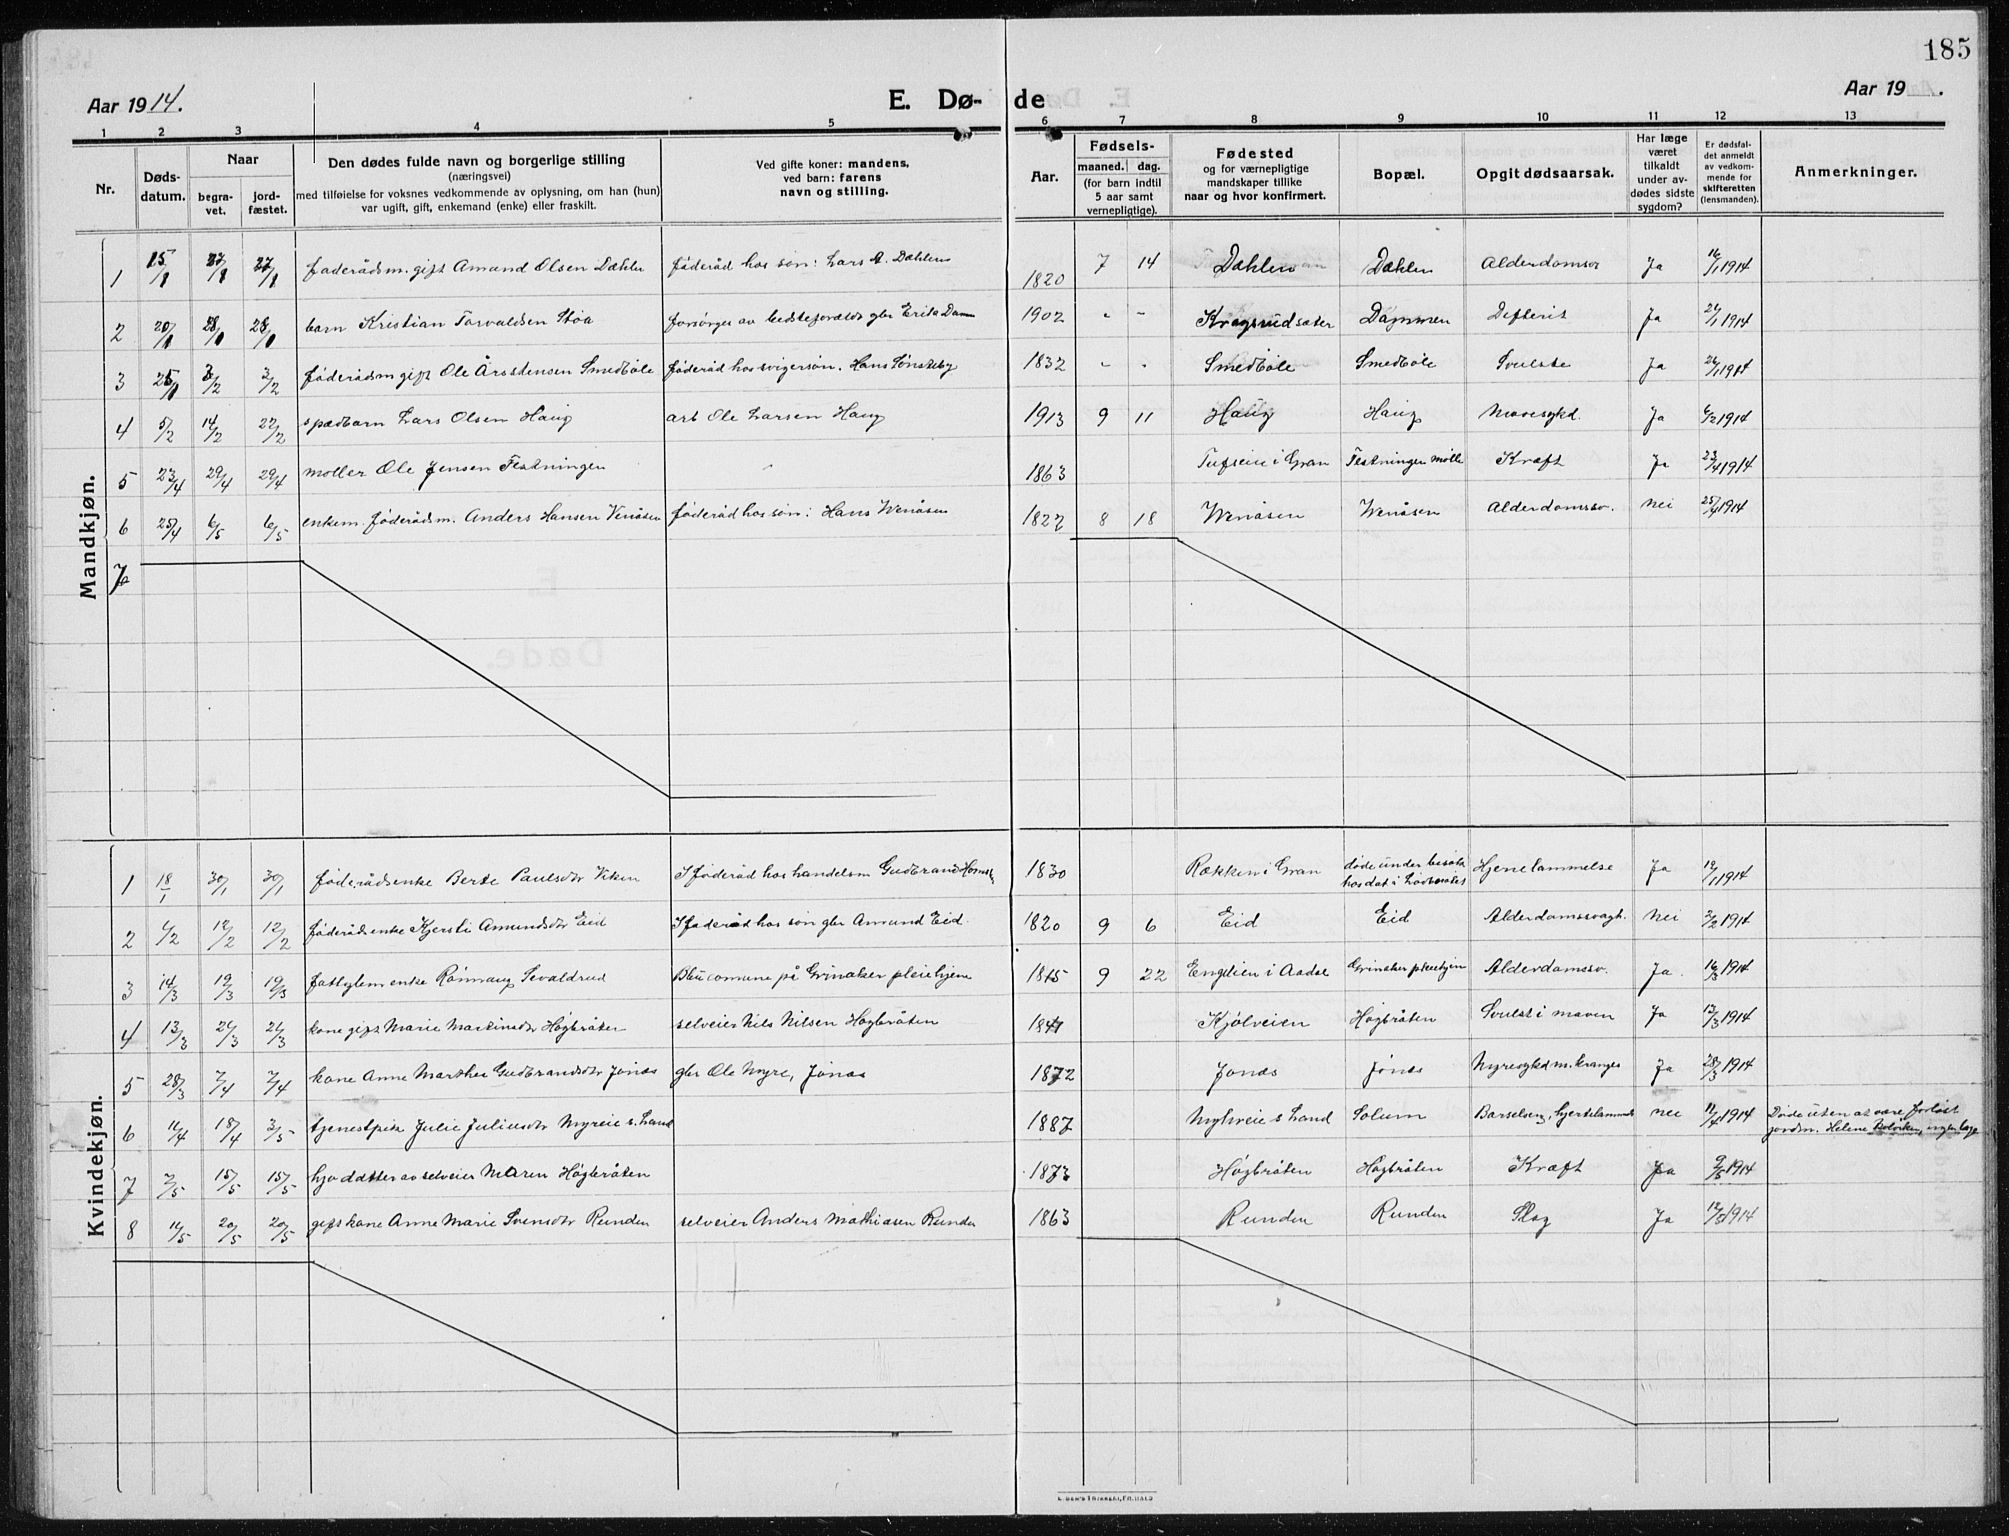 185
Aar 1914.
E. Dø-
de
Aar 19 .
1 2 3 4 5 6 7 8 9 10 11 12 13
Nr.
Døds-
datum.
Naar
begra-
vet.
jord-
fæstet.
Den dødes fulde navn og borgerlige stilling
(næringsvei)
med tilføielse for voksnes vedkommende av oplysning, om han (hun)
var ugift, gift, enkemand (enke) eller fraskilt.
Ved gifte koner: mandens,
ved barn: farens
navn og stilling.
Aar.
Fødsels-
maaned. dag.
(for barn indtil
5 aar samt
vernepligtige).
Fødested
og for værnepligtige
mandskaper tillike
naar og hvor konfirmert.
Bopæl.
Opgit dødsaarsak.
Har læge
været
tilkaldt
under av-
dødes sidste
sygdom?
Er dødsfal-
det anmeldt
av vedkom-
mende for
skifteretten
(lensmanden).
Anmerkninger.
Mandkjøn.
1 15/1 27/1 27/1 føderådsm. gift Amund Olsen Dæhlen føderåd hos søn: Lars A. Dæhlen 1820 7 14 Dæhlen Dæhlen Alderdomssv Ja 16/1 1914
2 20/1 28/1 28/1 barn Kristian Torvaldsen Stoa forsørges av bedsteforældr gbr Erik Damm 1902 " - Kragsrudsæter Dammen Defterit Ja 21/1 1914
3 25/1 3/2 3/2 føderådsm gift Ole Årstensen Smedbøle føderåd hos svigersøn. Hans Sønsteby 1832 - . Smedbøle Smedbøle Svulste Ja 26/1 1914
4 5/2 14/2 22/2 spædbarn Lars Olsen Haug arb Ole Larsen Haug 1913 9 11 Haug Haug Mavesykd. Ja 6/2 1914
5 23/4 29/4 29/4 møller Ole Jensen Festningen " 1863 i Gran Festningen mølle Kræft Ja 23/4 1914
6 25/4 6/5 6/5 enkem. føderådsm. Anders Hansen Venåsen føderåd hos søn: Hans Wenåsen 1822 8 18 Wenåsen Wenåsen Alderdomssv. Nei 25/4 1914
7
Kvindekjøn.
1 18/1 30/1 30/1 føderådsenke Berte Paulsdtr Viken I føderåd hos handelsm Gudbrand 1830 Rækken i Gran døde under besøk
hos dat i Hjernelammelse Ja 19/1 1914
2 4/2 12/2 12/2 føderådsenke Kjersti Amundsdtr Eid I føderåd hos søn gbr Amund Eid. 1820 9 6 Eid Eid Alderdomssvagh. Nei 3/2 1914
3 14/3 19/3 19/3 fattiglem enke Rønnaug Sevaldrud på Grinaker pleiehjem 1815 9 22 Engelien i Aadal Grinaker pleiehjem Alderdomssv. Ja. 16/3 1914
4 13/3 21/3 21/3 kone gift Marie Martinsdtr Høgbråten selveier Nils Nilsen Høgbråten 1841 Kjølveien Høgbråten Svulst i maven Ja 13/3 1914
5 28/3 7/4 7/4 kone Anne Marthea Gudbrandsdtr Jonas gbr Ole Myre, Jonas 1872 Jonas Jonas Nyresykd m. kranges Ja 28/3 1914
6 11/4 18/4 3/5 tjenestpik Julie Juliusdtr Myreie s. Land 1887 s Land Solum Barselseng, hjertelammels Nei 11/4 1914 Døde uten at være forløst
jordm. Helene ingen læge
7 7/5 15/5 15/5 hjv datter av selveier Maren Høgbråten 1873 Høgbråten Høgbråten Kræft Ja 9/5 1914
8 11/5 20/5 20/5 gift kone Anne Marie Svensdtr Runden selveier Anders Mathiasen Runden 1863 Runden Runden Slag Ja 12/5 1914